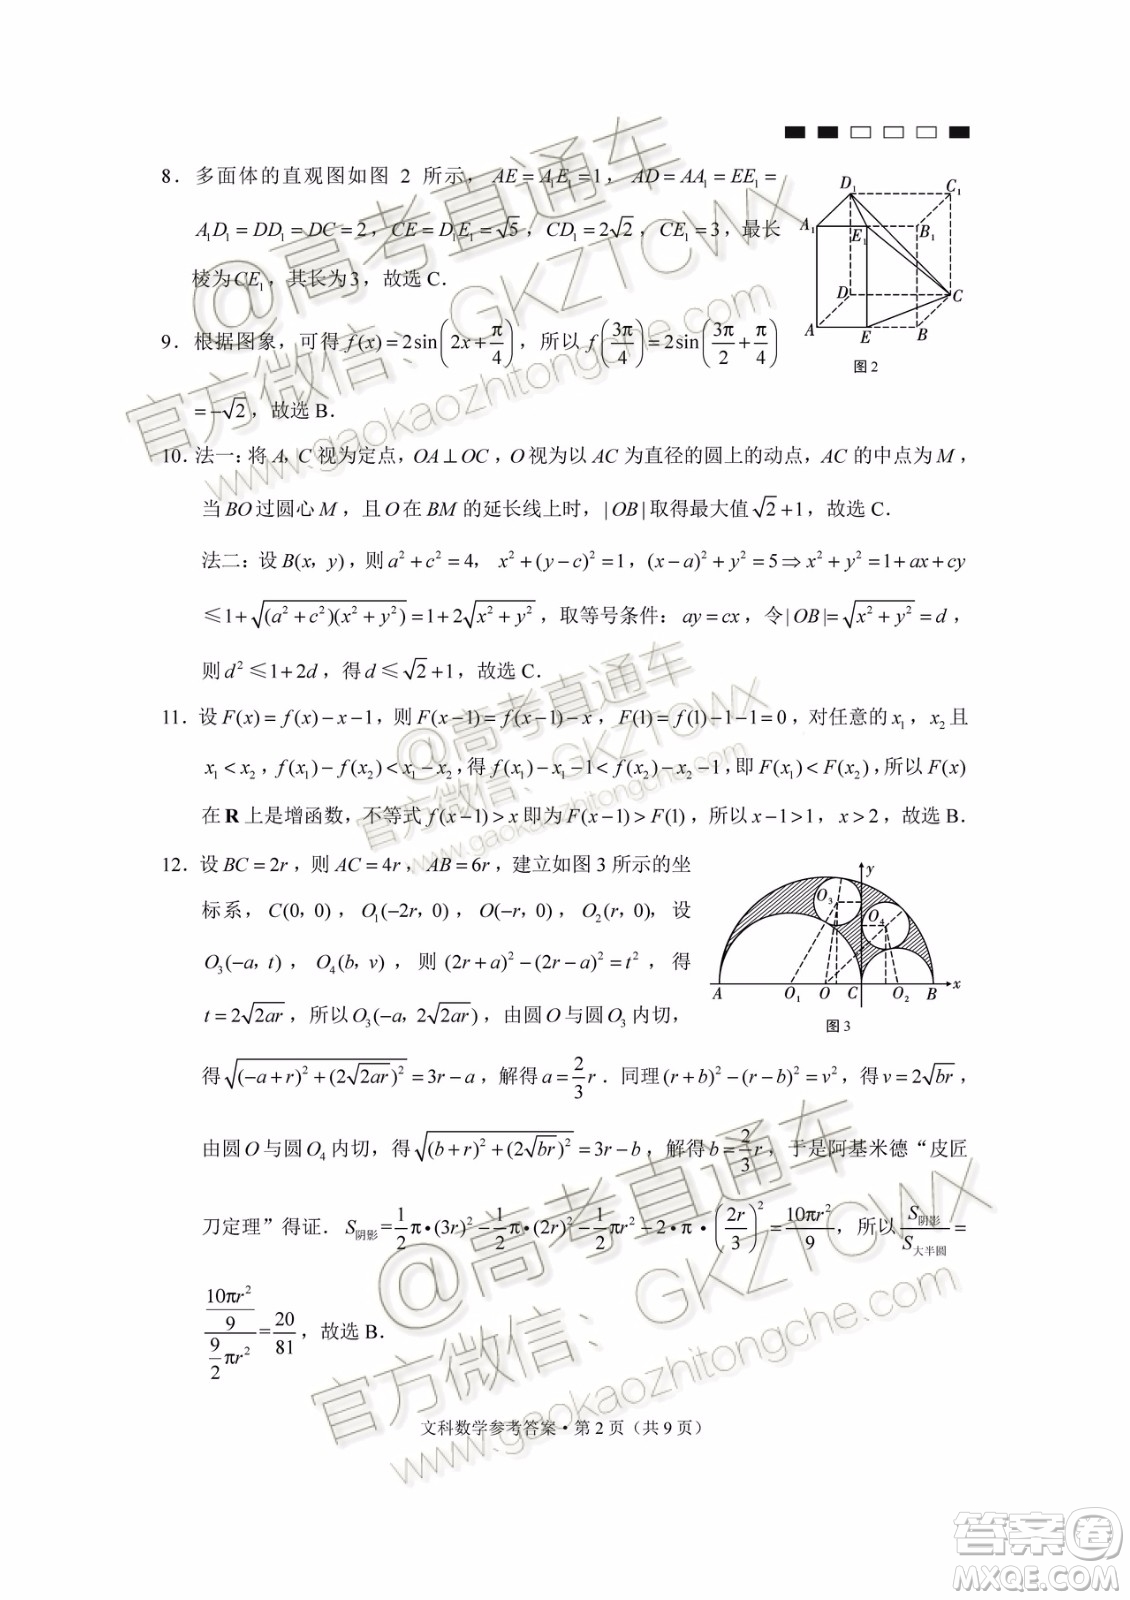 8．多面体的直观图如图 2 所示，AE=A₁E₁=1，AD=AA₁=EE₁=
A₁D₁=DD₁=DC=2，CE=D₁E₁=√5，CD₁=2√2，CE₁=3，最长
棱为CE₁，其长为3，故选 C．
D₁ C₁ A₁ E₁ B₁ D C A E B
图 2
9．根据图象，可得 f(x)=2sin(2x+π/4)，所以 f(3π/4)=2sin(3π/2+π/4)
=-√2，故选 B．
10．法一：将 A，C 视为定点，OA⊥OC，O 视为以 AC 为直径的圆上的动点，AC 的中点为 M，
当 BO 过圆心 M，且 O 在 BM 的延长线上时，|OB|取得最大值 √2+1，故选 C．
法二：设 B(x，y)，则 a²+c²=4，x²+(y-c)²=1，(x-a)²+y²=5⇒x²+y²=1+ax+cy
≤1+√((a²+c²)(x²+y²))=1+2√(x²+y²)，取等号条件：ay=cx，令|OB|=√(x²+y²)=d，
则 d²≤1+2d，得 d≤√2+1，故选 C．
11．设 F(x)=f(x)-x-1，则 F(x-1)=f(x-1)-x，F(1)=f(1)-1-1=0，对任意的 x₁，x₂ 且
x₁<x₂，f(x₁)-f(x₂)<x₁-x₂，得 f(x₁)-x₁-1<f(x₂)-x₂-1，即 F(x₁)<F(x₂)，所以 F(x)
在 R 上是增函数，不等式 f(x-1)>x 即为 F(x-1)>F(1)，所以 x-1>1，x>2，故选 B．
12．设 BC=2r，则 AC=4r，AB=6r，建立如图 3 所示的坐
标系，C(0，0)，O₁(-2r，0)，O(-r，0)，O₂(r，0)，设
O₃(-a，t)，O₄(b，v)，则 (2r+a)²-(2r-a)²=t²，得
t=2√(2ar)，所以 O₃(-a，2√(2ar))，由圆 O 与圆 O₃ 内切，
y O₃ O₄ A O₁ O C O₂ B x
图 3
得√((-a+r)²+(2√(2ar))²)=3r-a，解得 a=2/3r．同理 (r+b)²-(r-b)²=v²，得 v=2√(br)，
由圆 O 与圆 O₄ 内切，得√((b+r)²+(2√(br))²)=3r-b，解得 b=2/3r，于是阿基米德“皮匠
刀定理”得证．S阴影=1/2π•(3r)²-1/2π•(2r)²-1/2πr²-2•π•(2r/3)²=10πr²/9，所以 S阴影/S大半圆=
(10πr²/9)/(9/2πr²)=20/81，故选 B．
文科数学参考答案·第 2 页（共 9 页）
@高考直通车
官方微信：GKZTCWX
www.gaokaozhitongche.com
@高考直通车
官方微信：GKZTCWX
www.gaokaozhitongche.com
@高考直通车
官方微信：GKZTCWX
www.gaokaozhitongche.com
答案圈
MXQE.COM